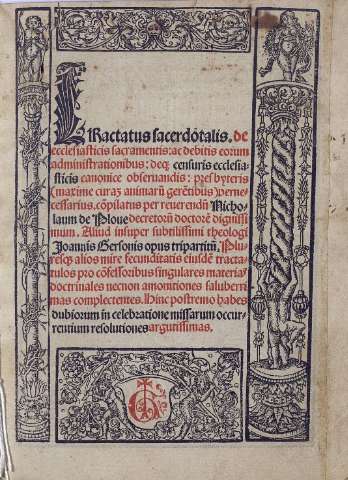 Tractatus sacerdōtalis. de
ecclesiasticis sacramentis: ac debitis eorum
administrationibus: deq; censuris ecclesia-
sticis canonice obseruandis: presbyteris
(maxime curaȝ animarū gerētibus) pernec-
cessarius. cōpilatus per reuerendū Nicho-
laum de Ploue decretorū doctorē digniſſi
mum. Aliud insuper subtiliſſimi theologi
Joannis Gersonis opus tripartitū. Plu-
resq; alios mire fecunditatis eiusdē tracta-
tulos pro cōfessoribus singulares materias
doctrinales necnon amonitiones saluberri
mas complectentes. Hinc postremo habes
dubiorum in celebratione missarum occur-
rentium resolutiones argutiſſimas.